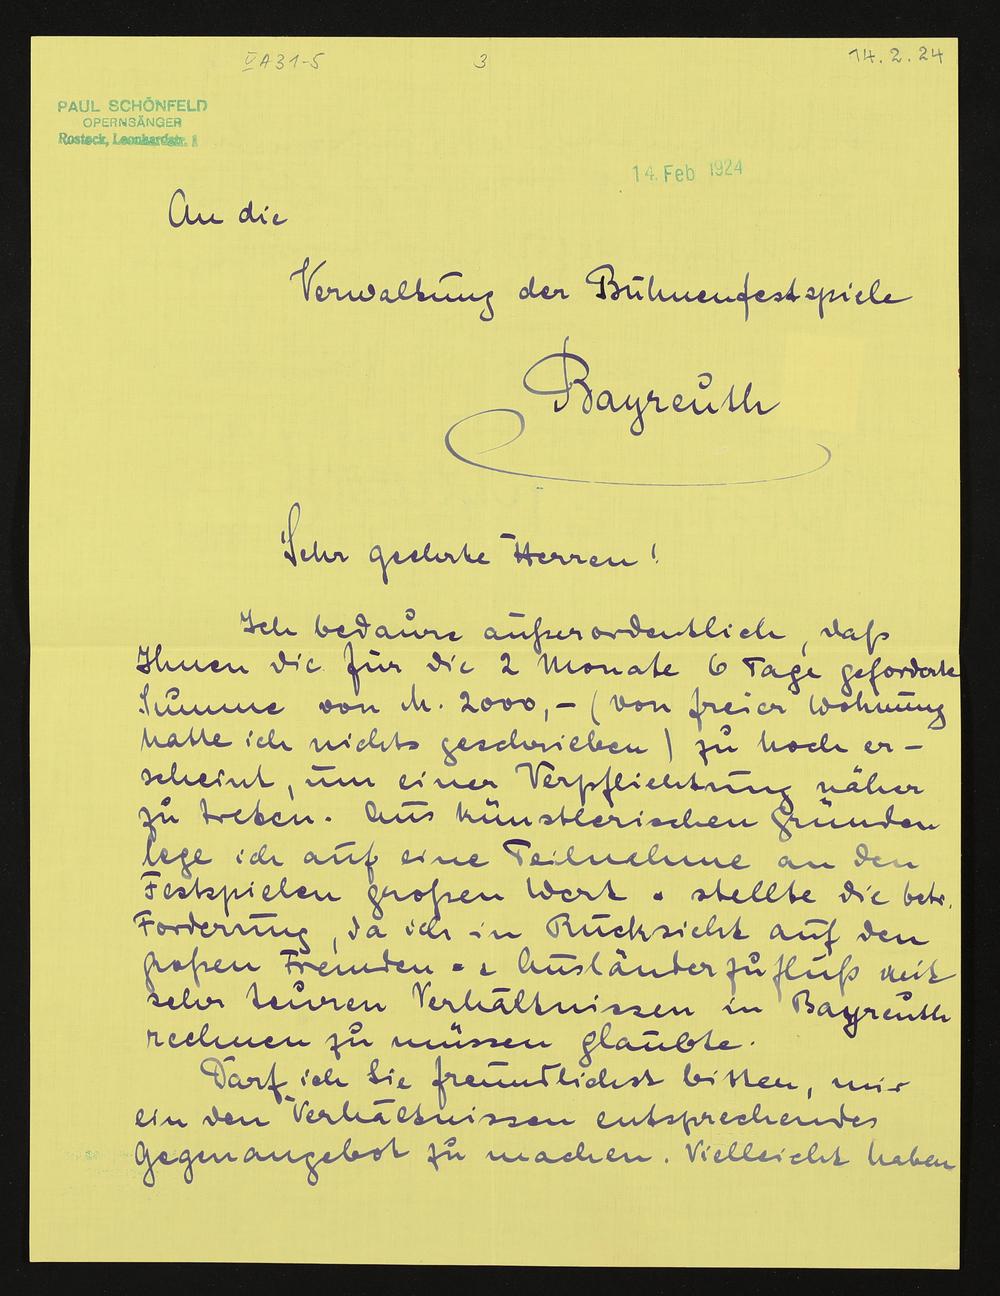 V A 31-5
3
14.2.24
PAUL SCHÖNFELD
OPERNSÄNGER
Rostock, Leonhardstr. 1
14. Feb 1924
An die
Verwaltung der Bühnenfestspiele
Bayreuth
Sehr geehrte Herren!
Ich bedaure außerordentlich, daß
Ihnen die für die 2 Monate 6 Tage geforderte
Summe von M. 2000,- (von freier Wohnung
hatte ich nichts geschrieben) zu hoch er-
scheint, um einer Verpflichtung näher
zu treten. Aus künstlerischen Gründen
lege ich auf eine Teilnehme an den
Festspielen großen Wert & stellte die betr.
Forderung, da ich in Rücksicht auf den
großen Fremden- & Ausländerzufluß mit
sehr teuren Verhältnissen in Bayreuth
rechnen zu müssen glaubte.
Darf ich Sie freundlichst bitten, mir
ein den Verhältnissen entsprechendes
Gegenangebot zu machen. Vielleicht haben